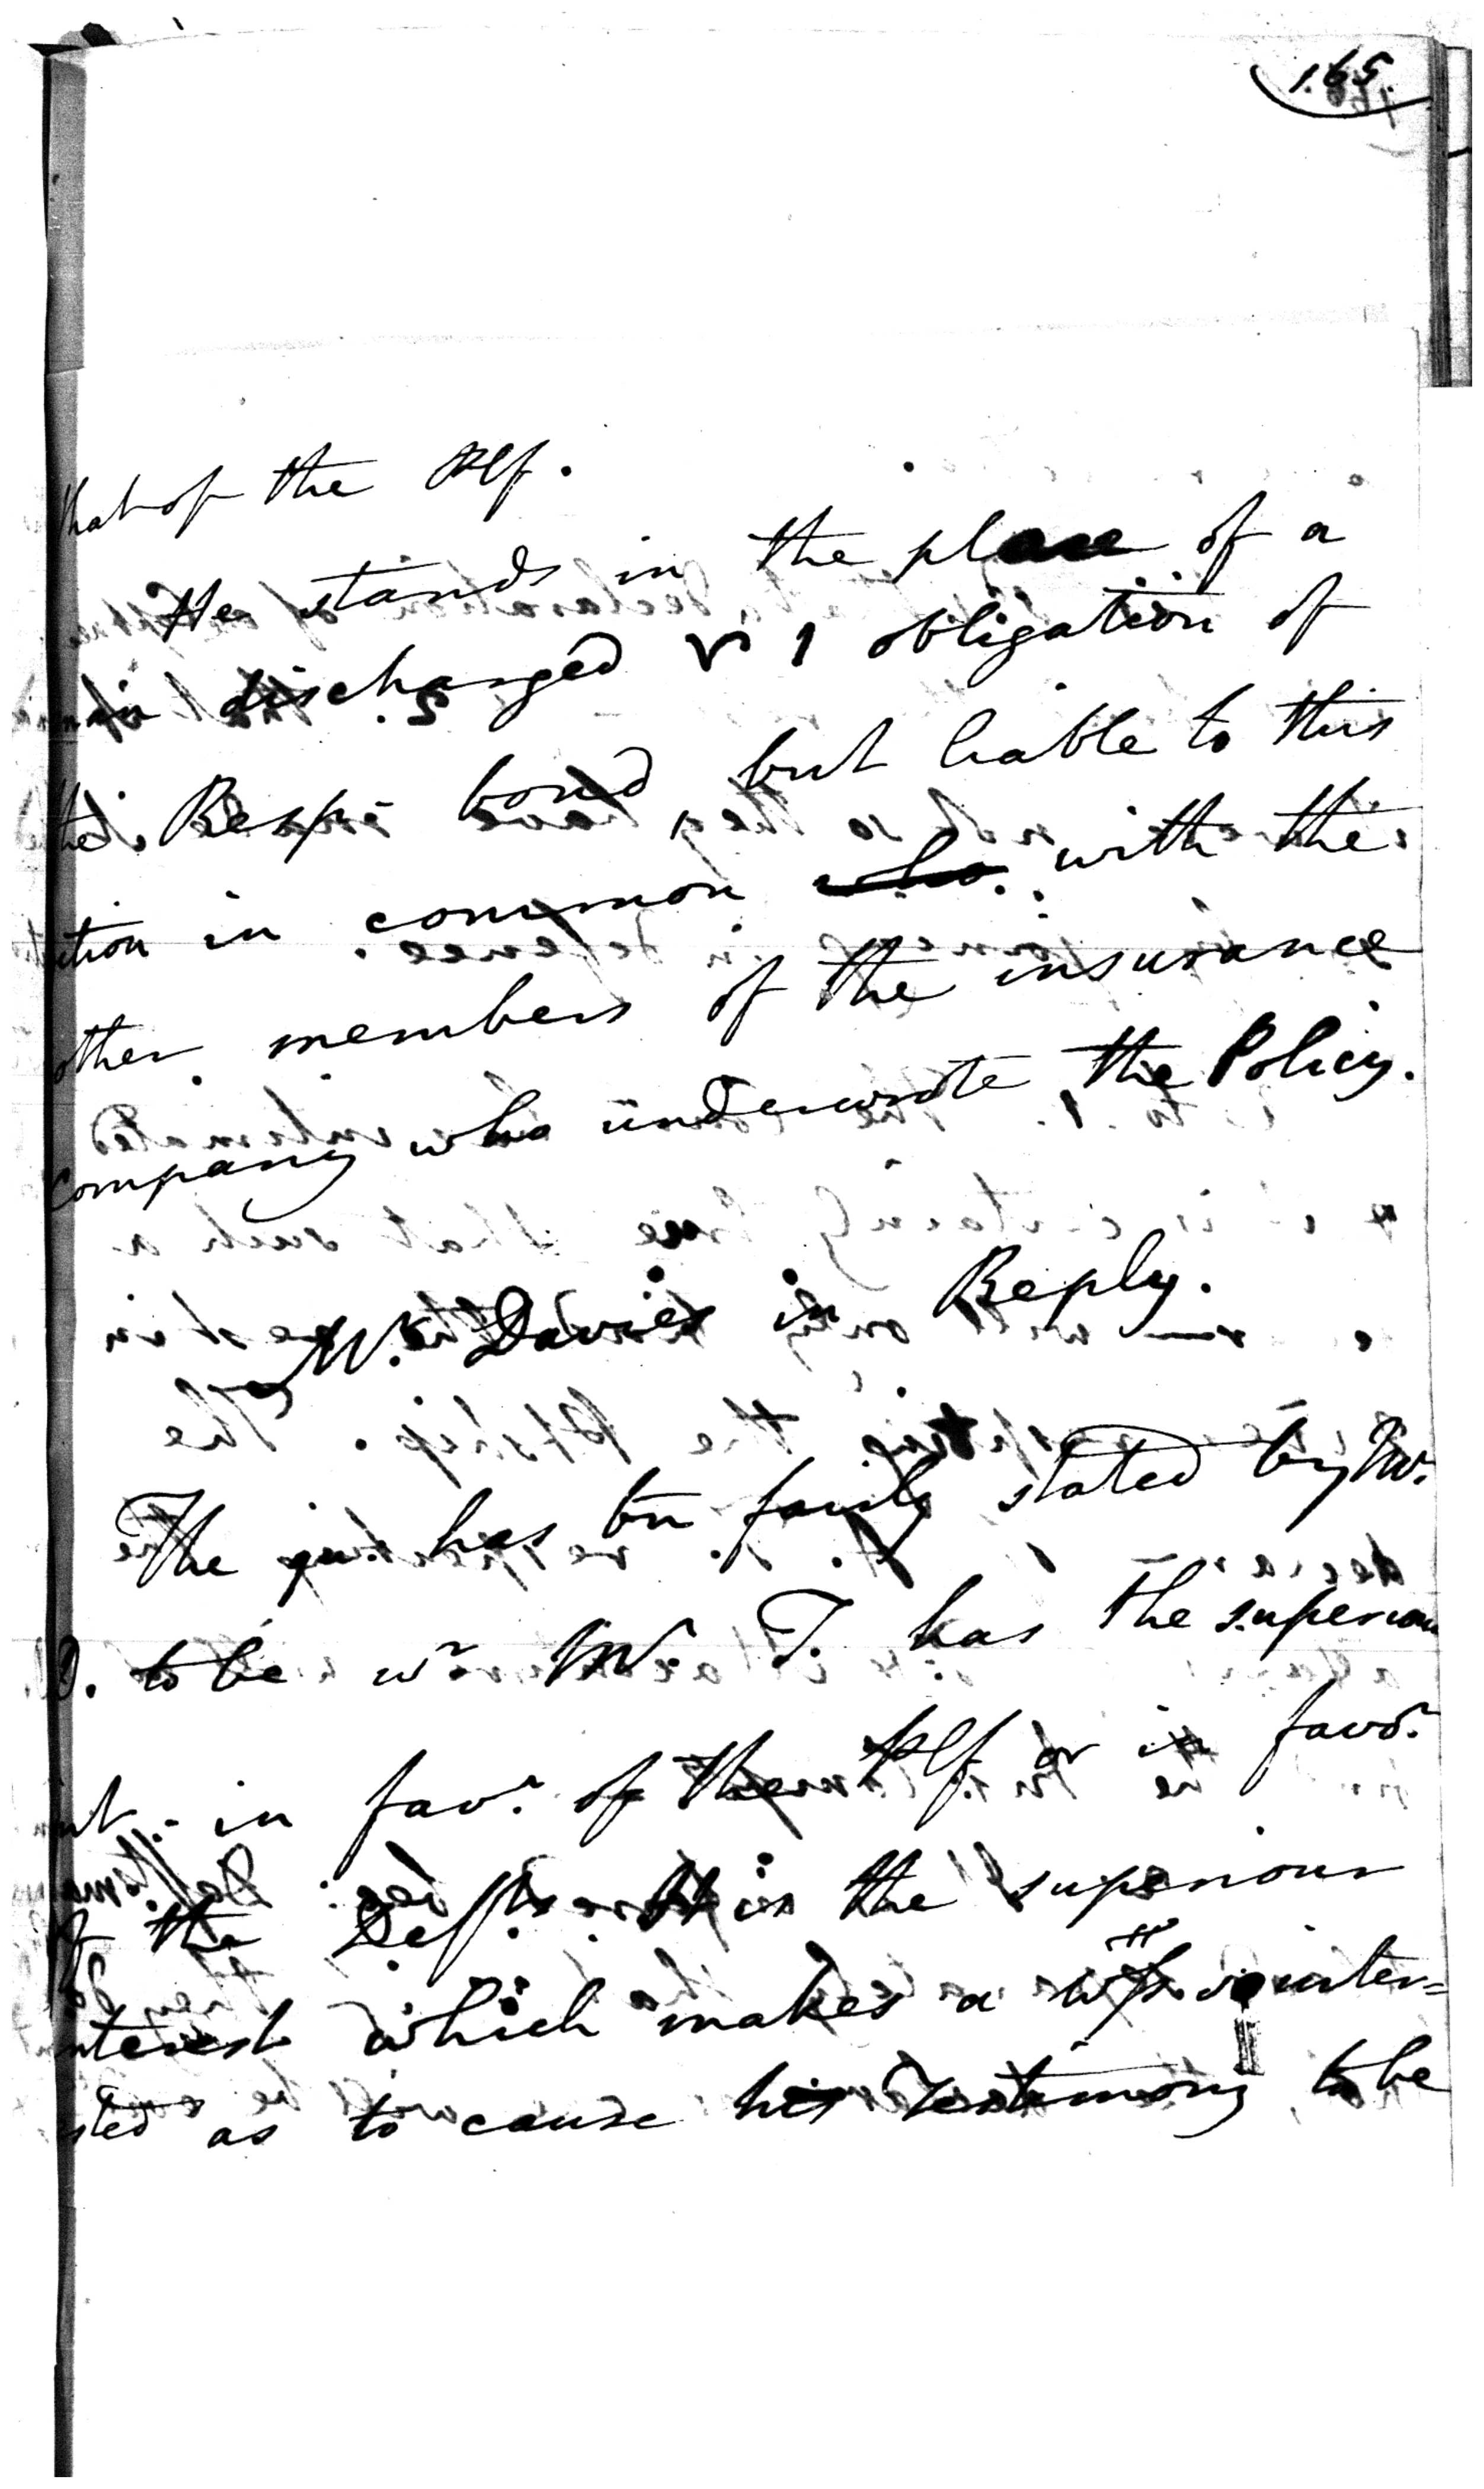 165.
that of the Plf.
He stands in the place of a
man discharged obligation of
the Resp. bond, but liable to this
action in common who with the
other members of the insurance
company who underwrote the Policy.
Mr. Davies in Reply.
The qu. has bn fairly stated by Mr.
D. to be wr Mr. T. has the superiour
int. in favr. of the Plf or in favor.
of the Defts. It is the superiour
interest which makes a inter=
sted as to cause his Testimony to be